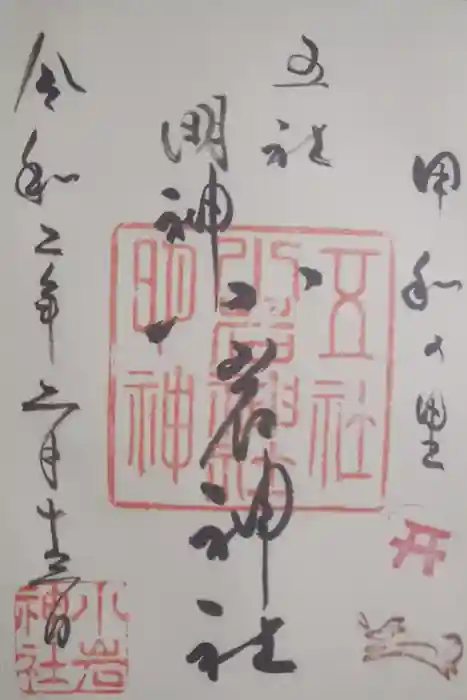 甲和の里
五社
明神
小岩神社
令和二年三月十三日
五社
小岩神社
明神
小岩
神社